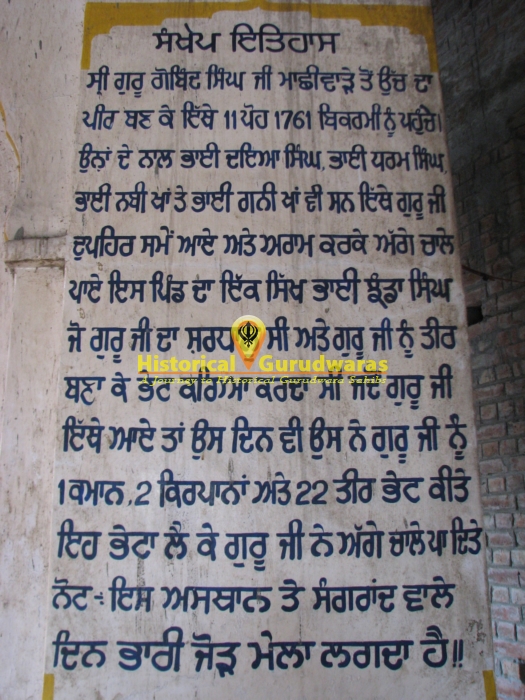 ਸੰਖੇਪ ਇਤਿਹਾਸ
ਸ੍ਰੀ ਗੁਰੂ ਗੋਬਿੰਦ ਸਿੰਘ ਜੀ ਮਾਛੀਵਾੜੇ ਤੋਂ ਉੱਚ ਦਾ
ਪੀਰ ਬਣ ਕੇ ਇੱਥੇ 11 ਪੋਹ 1761 ਬਿਕਰਮੀ ਨੂੰ ਪਹੁੰਚੇ।
ਉਨਾਂ ਦੇ ਨਾਲ ਭਾਈ ਦਇਆ ਸਿੰਘ, ਭਾਈ ਧਰਮ ਸਿੰਘ,
ਭਾਈ ਨਬੀ ਖਾਂ ਤੇ ਭਾਈ ਗਨੀ ਖਾਂ ਵੀ ਸਨ ਇੱਥੇ ਗੁਰੂ ਜੀ
ਦੁਪਹਿਰ ਸਮੇਂ ਆਏ ਅਤੇ ਅਰਾਮ ਕਰਕੇ ਅੱਗੇ ਚਾਲੇ
ਪਾਏ ਇਸ ਪਿੰਡ ਦਾ ਇੱਕ ਸਿੱਖ ਭਾਈ ਝੰਡਾ ਸਿੰਘ
ਜੋ ਗੁਰੂ ਜੀ ਦਾ ਸੀ ਅਤੇ ਗੁਰੂ ਜੀ ਨੂੰ ਤੀਰ
Historical Gurudwaras
A Journey to Historical Gurudwara Sahibs
ਬਣਾ ਕੇ ਭੇਟ ਕਰਿਆ ਕਰਦਾ ਸੀ ਜਦੋਂ ਗੁਰੂ ਜੀ
ਇੱਥੇ ਆਏ ਤਾਂ ਉਸ ਦਿਨ ਵੀ ਉਸ ਨੇ ਗੁਰੂ ਜੀ ਨੂੰ
1 ਕਮਾਨ, 2 ਕਿਰਪਾਨਾਂ ਅਤੇ 22 ਤੀਰ ਭੇਟ ਕੀਤੇ
ਇਹ ਭੇਟਾ ਲੈ ਕੇ ਗੁਰੂ ਜੀ ਨੇ ਅੱਗੇ ਚਾਲੇ ਪਾ ਦਿਤੇ
ਨੋਟ:- ਇਸ ਅਸਥਾਨ ਤੇ ਸੰਗਰਾਂਦ ਵਾਲੇ
ਦਿਨ ਭਾਰੀ ਜੋੜ ਮੇਲਾ ਲਗਦਾ ਹੈ॥